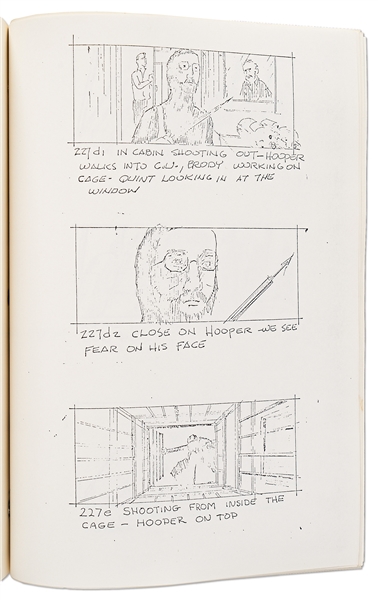 227d1 IN CABIN SHOOTING OUT-HOOPER
WALKS INTO C.U., BRODY WORKING ON
CAGE- QUINT LOOKING IN AT THE
WINDOW
227d2 CLOSE ON HOOPER -WE SEE
FEAR ON HIS FACE
227e SHOOTING FROM INSIDE THE
CAGE - HOOPER ON TOP